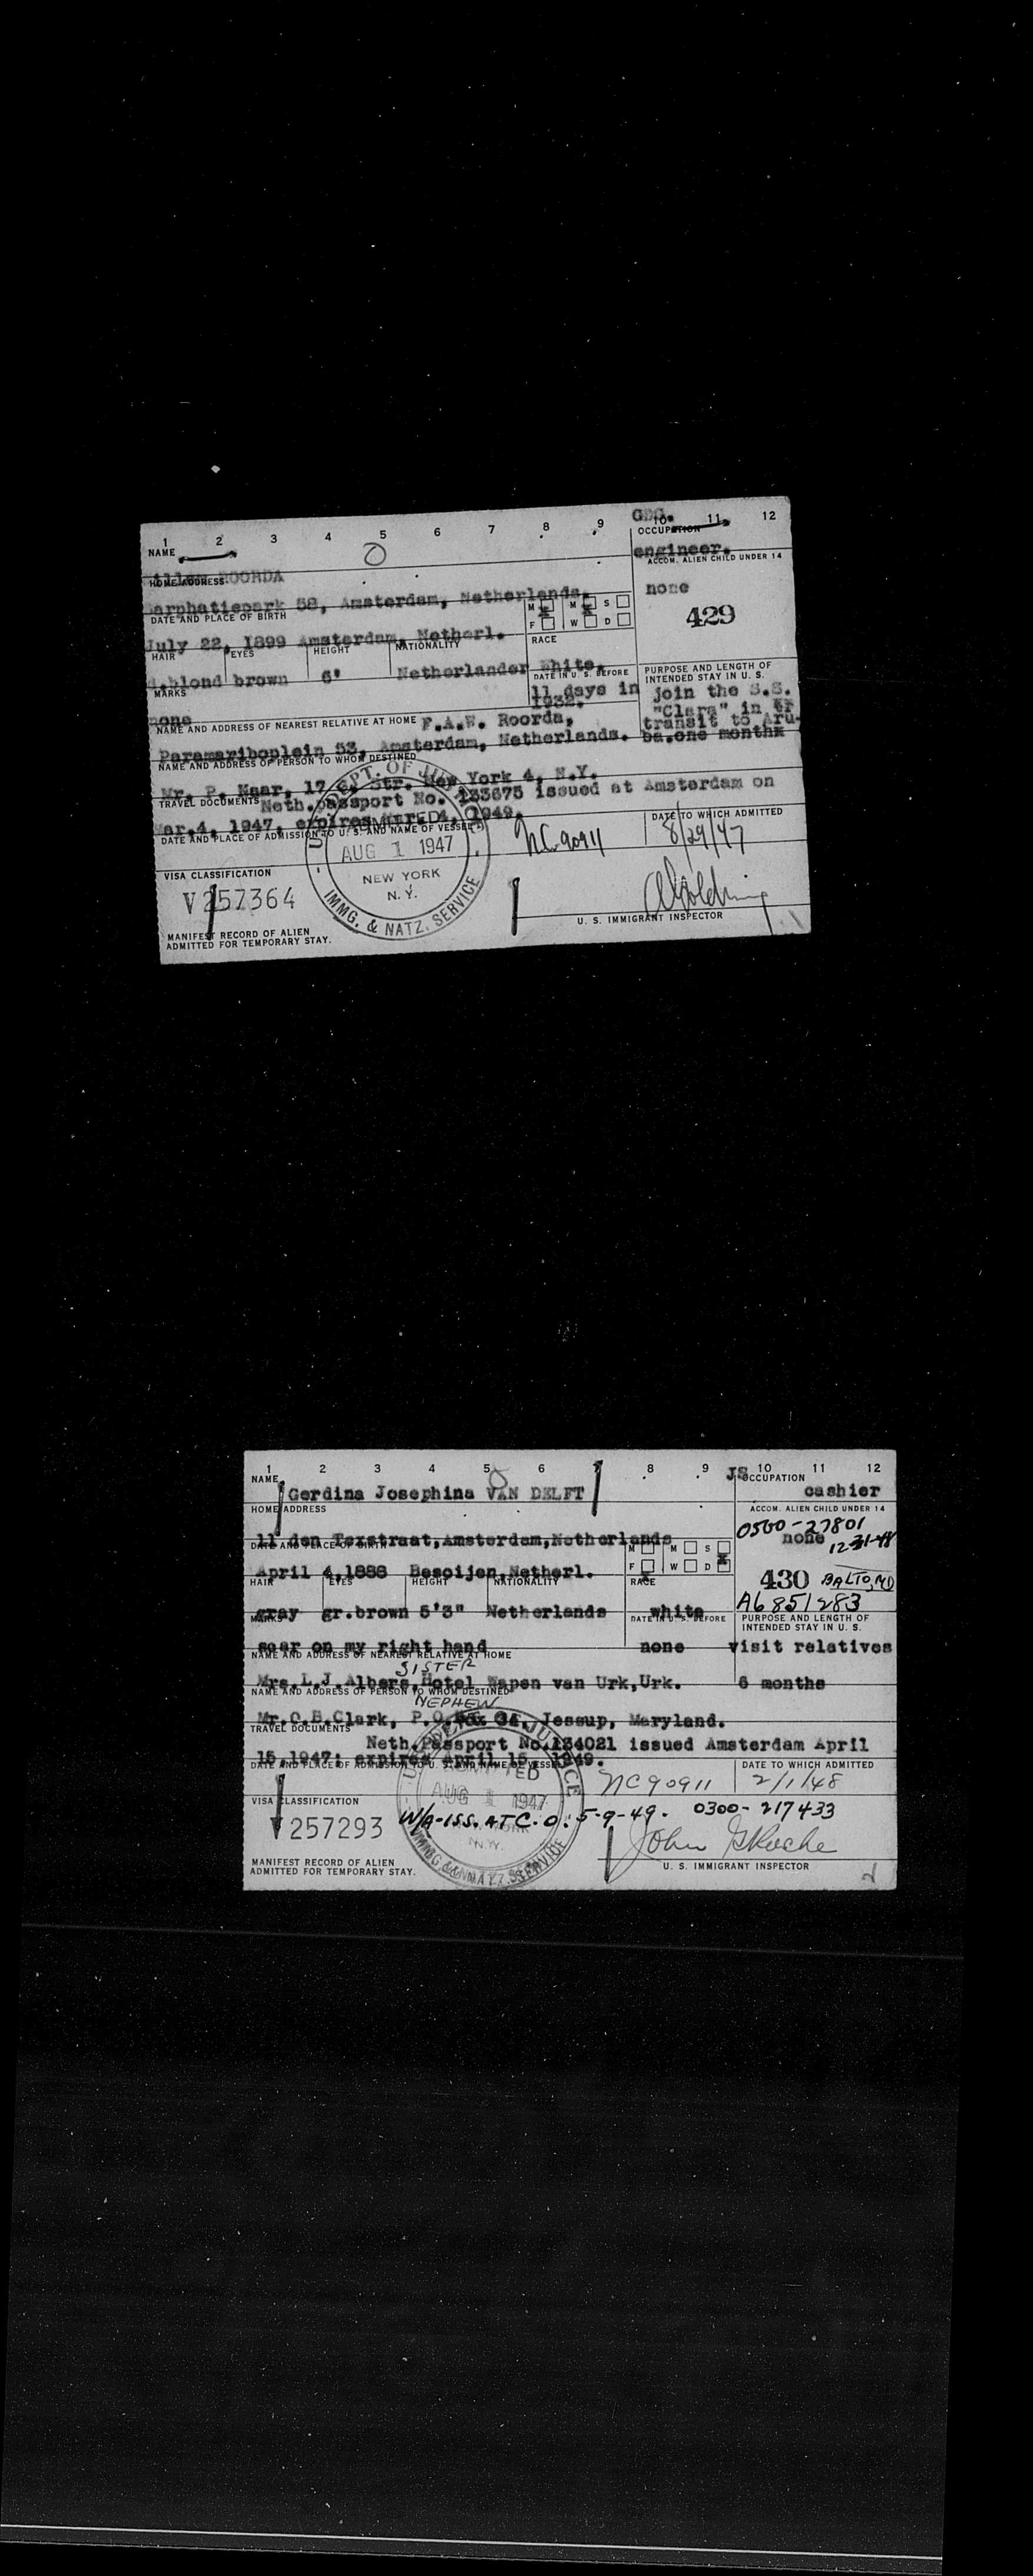 1 2 3 4 5 6 7 8 9 10 11 12
NAME
OCCUPATION
engineer.
ROORDA
HOME ADDRESS
ACCOM. ALIEN CHILD UNDER 14
none
arphatiepark 58, Amsterdam, Netherlands.
DATE AND PLACE OF BIRTH
M M S
F W D
429
July 22, 1899 Amsterdam, Netherl.
HAIR EYES HEIGHT NATIONALITY RACE
blond brown 6' Netherlander White.
MARKS
DATE IN U. S. BEFORE
PURPOSE AND LENGTH OF
INTENDED STAY IN U. S.
11 days in
1932.
join the S.S.
"Clara" in
transit to Aru-
ba.one month
none
NAME AND ADDRESS OF NEAREST RELATIVE AT HOME F.A.W. Roorda,
Paramariboplein 53, Amsterdam, Netherlands.
NAME AND ADDRESS OF PERSON TO WHOM DESTINED
Mr. P. Naar, 17 Str. New York 4, N.Y.
TRAVEL DOCUMENTS Neth.passport No. 133675 issued at Amsterdam on
Mar.4, 1947, expires 4, 1949.
DATE AND PLACE OF ADMISSION TO U. S. AND NAME OF VESSEL
DATE TO WHICH ADMITTED
DEPT. OF JUSTICE
ADMITTED
AUG 1 1947
NEW YORK
N. Y.
IMMG. & NATZ. SERVICE
NC90911
8/29/47
VISA CLASSIFICATION
V257364
U. S. IMMIGRANT INSPECTOR
MANIFEST RECORD OF ALIEN
ADMITTED FOR TEMPORARY STAY.
1 2 3 4 5 6 7 8 9 10 11 12
NAME
JS OCCUPATION
Gerdina Josephina VAN DELFT
cashier
HOME ADDRESS
ACCOM. ALIEN CHILD UNDER 14
0500-27801
none
12-31-48
11 den Texstraat,Amsterdam,Netherlands
DATE AND PLACE OF BIRTH
M M S
F W D
April 4,1888 Besoijen,Netherl.
430 BALTO, MD
A6851283
HAIR EYES HEIGHT NATIONALITY RACE
gray gr.brown 5'3" Netherlands white
MARKS
DATE IN U. S. BEFORE
PURPOSE AND LENGTH OF
INTENDED STAY IN U. S.
scar on my right hand none visit relatives
NAME AND ADDRESS OF NEAREST RELATIVE AT HOME
SISTER
Mrs.L.J.Albers,Hotel Wapen van Urk,Urk. 6 months
NAME AND ADDRESS OF PERSON TO WHOM DESTINED
NEPHEW
Mr.C.B.Clark, P.O.Box 34, Jessup, Maryland.
TRAVEL DOCUMENTS
Neth.Passport No.134021 issued Amsterdam April
15,1947; expires April 15, 1949.
DATE AND PLACE OF ADMISSION TO U. S. AND NAME OF VESSEL
DATE TO WHICH ADMITTED
ADMITTED
AUG 1 1947
N.Y.
IMMG. & NATZ. SERVICE
NC90911
2/1/48
VISA CLASSIFICATION
V257293
W/A-ISS. AT C.O: 5-9-49. 0300-217433
John G Roche
U. S. IMMIGRANT INSPECTOR
MANIFEST RECORD OF ALIEN
ADMITTED FOR TEMPORARY STAY.